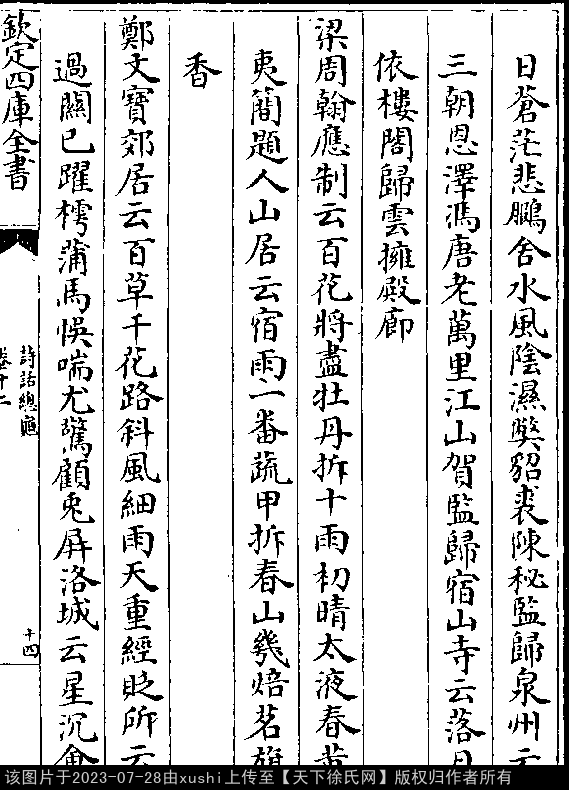 日蒼茫悲鵩舍水風陰濕弊貂裘陳秘監歸泉州云
三朝恩澤馮唐老萬里江山賀監歸宿山寺云落月
依樓閣歸雲擁殿廊
梁周翰應制云百花將盡牡丹拆十雨初晴太液春黄
夷簡題人山居云宿雨一番蔬甲拆春山幾焙茗旗
香
鄭文寶郊居云百草千花路斜風細雨天重經貶所云
過關已躍樗蒲馬悞喘尤驚顧兎屏洛城云星沉會
欽定四庫全書
詩話總龜
卷十二
十四
该图片于2023-07-28由xushi上传至【天下徐氏网】版权归作者所有